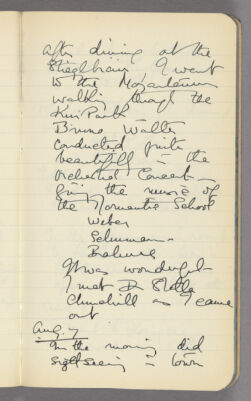 after dining at the
Stieglbräu I went
to the Mozarteum
walking through the
Kur Park -
Bruno Walter
conducted quite
beautifull - the
orchestral Concert -
giving the music of
the Romantic School
Weber
Schumann -
Brahms
It was wonderful -
I met Dr
Churchill as I came
out
Aug. 7
In the morning did
sightseeing in town